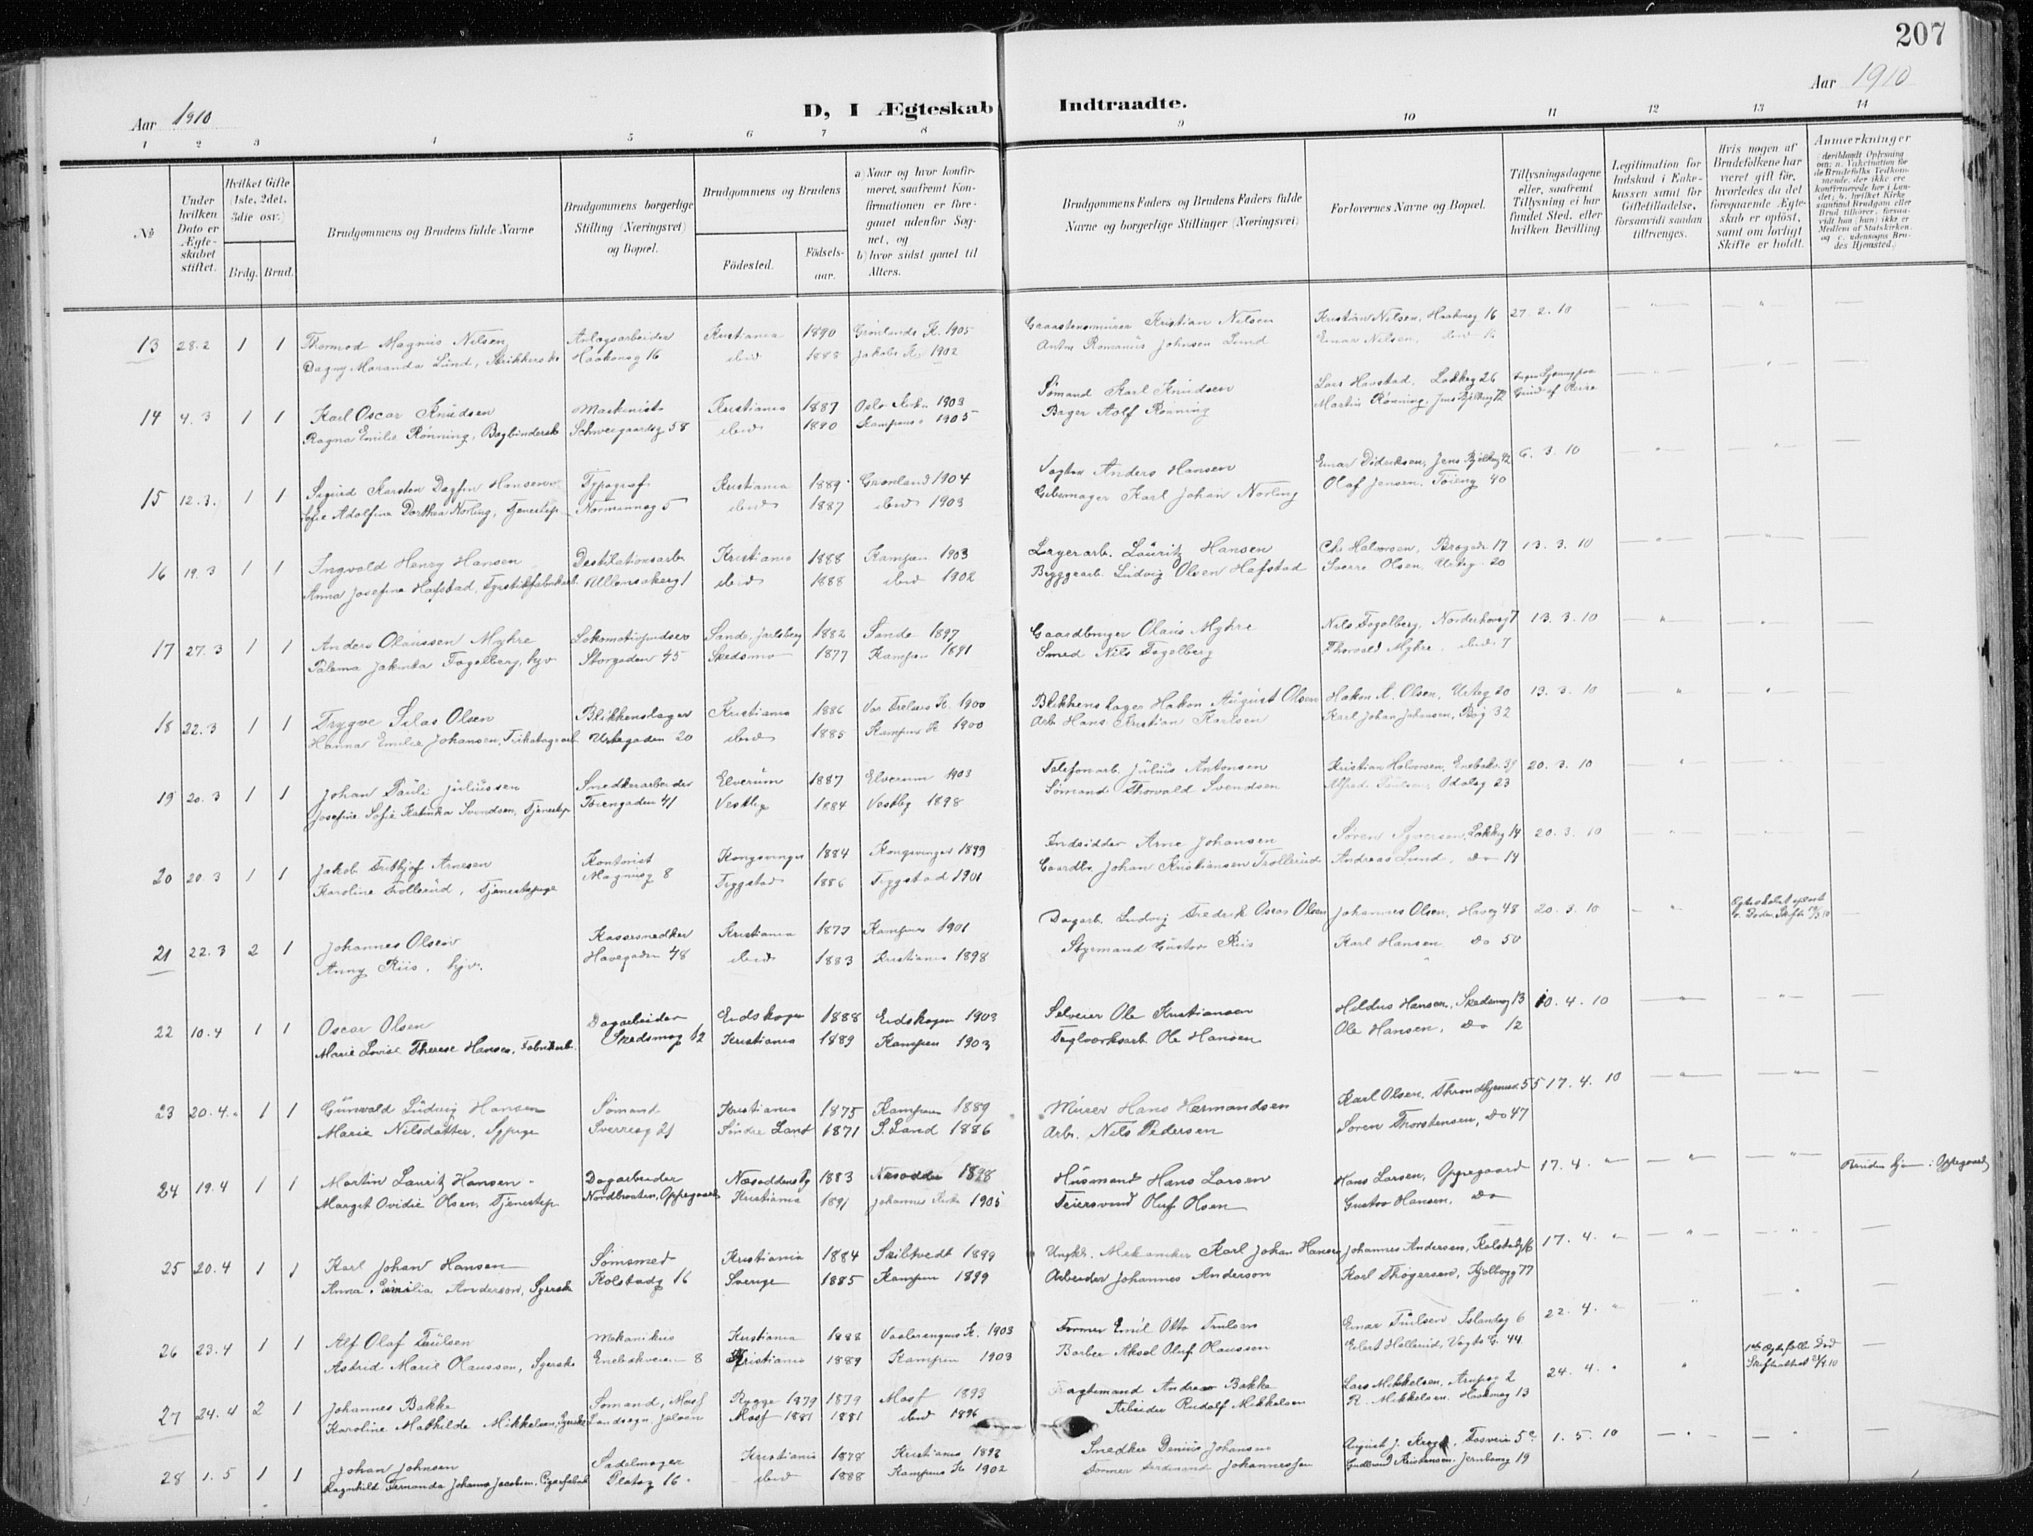 207
Aar 1910
D, I Ægteskab Indtraadte.
Aar 1910
1 2 3 4 5 6 7 8 9 10 11 12 13 14
No
Under hvilken Dato er Ægteskabet stiftet.
Hvilket Gifte (1ste, 2det, 3die osv.)
Brdg. Brud.
Brudgommens og Brudens fulde Navne
Brudgommens borgerlige Stilling (Næringsvei) og Bopæl.
Brudgommens og Brudens
Fødested.
Fødselsaar.
a) Naar og hvor konfirmeret, saafremt Konfirmationen er foregaaet udenfor Sognet, og
b) hvor sidst gaaet til Alters.
Brudgommens Faders og Brudens Faders fulde Navne og borgerlige Stillinger (Næringsvei)
Forlovernes Navne og Bopæl.
Tillysningsdagene eller, saafremt Tillysning ei har fundet Sted, efter hvilken Bevilling
Legitimation for Indskud i Enkekassen samt for Giftetilladelse, forsaavidt saadan tiltrænges.
Hvis nogen af Brudefolkene har været gift før, hvorledes da det foregaaende Ægteskab er opløst, samt om lovligt Skifte er holdt.
Anmærkninger
13 28.2 1 1 Thormod Magnus Nilsen Anlægsarbeider Kristiania 1890 Grønlands K. 1905 Kristian Nilsen Kristian Nilsen, Haakonsg 16 27.2.10
Dagny Maranda Lund, Strikkerske Haakonsg 16 ibid 1883 Jakobs K. 1902 Romanus Johnsen Lund Einar Nilsen, ibid 16
14 4.3 1 1 Karl Oscar Knudsen Maskinist Kristiania 1887 Oslo Kirke 1903 Sømand Karl Knudsen Lars Havstad, Lakkeg 26
Ragna Emilie Rønning, Bogbinderske Schweigaardsg 58 ibid 1890 Kampens 1905 Bager Adolf Rønning Martin Rønning, Jens Bjelkesg 72
15 12.3. 1 1 Sigurd Karsten Dagfin Hansen Typograf Kristiania 1889 Grønland 1904 Vogter Anders Hansen Einar Dideriksen, Jens Bjelkesg 42 6.3.10
Sofie Adolfine Dorthea Norling, Tjenestep Normannsg 5 ibid 1887 ibid 1903 Karl Johan Norling Olaf Jensen, Tøieng 40
16 19.3 1 1 Ingvald Henry Hansen Destilationsarb Kristiania 1888 Kampen 1903 Lagerarb. Lauritz Hansen Chr Halvorsen, Brogade 17 13.3.10
Anna Josefine Hafstad, Fyrstikfabrikarb. Ullensakerg 1 ibid 1888 ibid 1902 Bryggearb. Ludvig Olsen Hafstad Sverre Olsen, Urteg. 20
17 27.3 1 1 Anders Olaussen Myhre Lokomotivpudser Sande, Jarlsberg 1882 Sande 1897 Gaardbruger Olaus Myhre Nils Fagelberg, Norderhovsg 7 13.3.10
Palema Jakinka Fagelberg, hjv. Storgaden 45 Skedsmo 1877 Kampen 1891 Smed Nils Fagelberg Thorvald Myhre, ibid 7
18 22.3 1 1 Trygve Silas Olsen Blikkenslager Kristiania 1886 Vor Frelsers K. 1900 Blikkenslager Hakon August Olsen Hakon A. Olsen, Urteg 20 13.3.10
Hanna Emilie Johansen, Trikotagearb. Urtegaden 20 ibid 1885 Kampens K 1900 Arb Hans Kristian Karlsen Karl Johan Johansen, Bøg 32
19 20.3 1 1 Johan Pauli Juliussen Snedkerarbeider Elverum 1887 Elverum 1903 Telefonarb. Julius Antonsen Kristian Halvorsen, Enebakv. 39 20.3.10
Josefine Sofie Katinka Svendsen, Tjenestep Tøiengaden 41 Vestby 1884 Vestby 1898 Sømand Thorvald Svendsen Alfred Paulsen, Odalsg 23
20 20.3 1 1 Jakob Fridtjof Arnesen Kontorist Kongsvinger 1884 Kongsvinger 1899 Indsidder Arne Johansen Søren Syversen, Lakkeg 14 20.3.10
Karoline Trollerud, Tjenestepige Magnusg 8 Trygstad 1886 Trygstad 1901 Gaardbr. Johan Kristiansen Trollerud Andreas Lund, Do 14
21 22.3 2 1 Johannes Olsen Kassesnedker Kristiania 1877 Kampens 1901 Dagarb. Ludvig Fredrik Oscar Olsen Johannes Olsen, Haveg 48 20.3.10
Anny Riis, hjv. Havegaden 48 ibid 1883 Kristiania 1898 Styrmand Gustav Riis Karl Hansen Do 50
22 10.4 1 1 Oscar Olsen Dagarbeider Eidskogen 1888 Eidskogen 1903 Selveier Ole Kristiansen Hildus Hansen, Skedsmog 13 10.4.10
Marie Lovise Therese Hansen, Fabrikarb. Skedsmog 12 Kristiania 1889 Kampen 1903 Teglværksarb. Ole Hansen Ole Hansen, Do 12
23 20.4. 1 1 Gunvald Ludvig Hansen Sømand Kristiania 1875 Kampen 1889 Murer Hans Hermandsen Karl Olsen, Throndhjemsv. 55 17.4.10
Marie Nilsdatter, Sypige Sverresg 21 Søndre Land 1871 S. Land 1886 Arb. Nils Pedersen Søren Thorstensen, Do 47
24 19.4 1 1 Martin Lauritz Hansen Dagarbeider Næsodden 1883 Næsodden 1898 Husmand Hans Larsen Hans Larsen, Oppegaard 17.4. " Bruden hjem i Oppegaard
Margit Ovidie Olsen, Tjenestep. Nordbraaten, Oppegaard Kristiania 1891 Johannes Kirke 1905 Feiersvend Oluf Olsen Gustav Hansen, Do
25 20.4 1 1 Karl Johan Hansen Sømsmed Kristiania 1884 Skibtvedt 1899 Ungk. Mekaniker Karl Johan Hansen Johannes Andersen, Kolstadg 16 17.4. "
Anna Emilia Anderson, Syerske Kolstadg 16 Sverige 1885 Kampen 1899 Arbeider Johannes Anderson Karl Thøgersen, Kjølbergg 77
26 23.4 1 1 Alf Olaf Paulsen Mekanikus Kristiania 1888 Vaalerengens K. 1903 Former Emil Otto Paulsen Einar Paulsen Islandsg 6 22.4. "
Astrid Marie Olaussen, Syerske Enebakveien 8 Kristiania 1889 Kampen 1903 Barber Aksel Oluf Olaussen Eilert Hellerud, Vogts G. 44
27 24.4 2 1 Johannes Bakke Sømand, Moss Rygge 1879 1879 Moss 1893 Fragtemand Andreas Bakke Lars Mikkelsen, Arupsg 2 24.4. "
Karoline Mathilde Mikkelsen, Syerske Landsogn Jeløen Moss 1881 1881 ibid 1896 Arbeider Rudolf Mikkelsen R. Mikkelsen, Haakonsg 13
28 1.5 1 1 Johan Johnsen Sadelmager Kristiania 1878 Kristiania 1892 Snedker Johansen August J. Krogh, Fosveien 5c 1.5.10
Ragnhild Fernanda Johanne Jacobsen, Cigarfabrik Platøg 16 ibid 1888 Kampens K 1902 Former Ferdinand Johannessen Gudbrand Kristensen, Jernbaneg 19